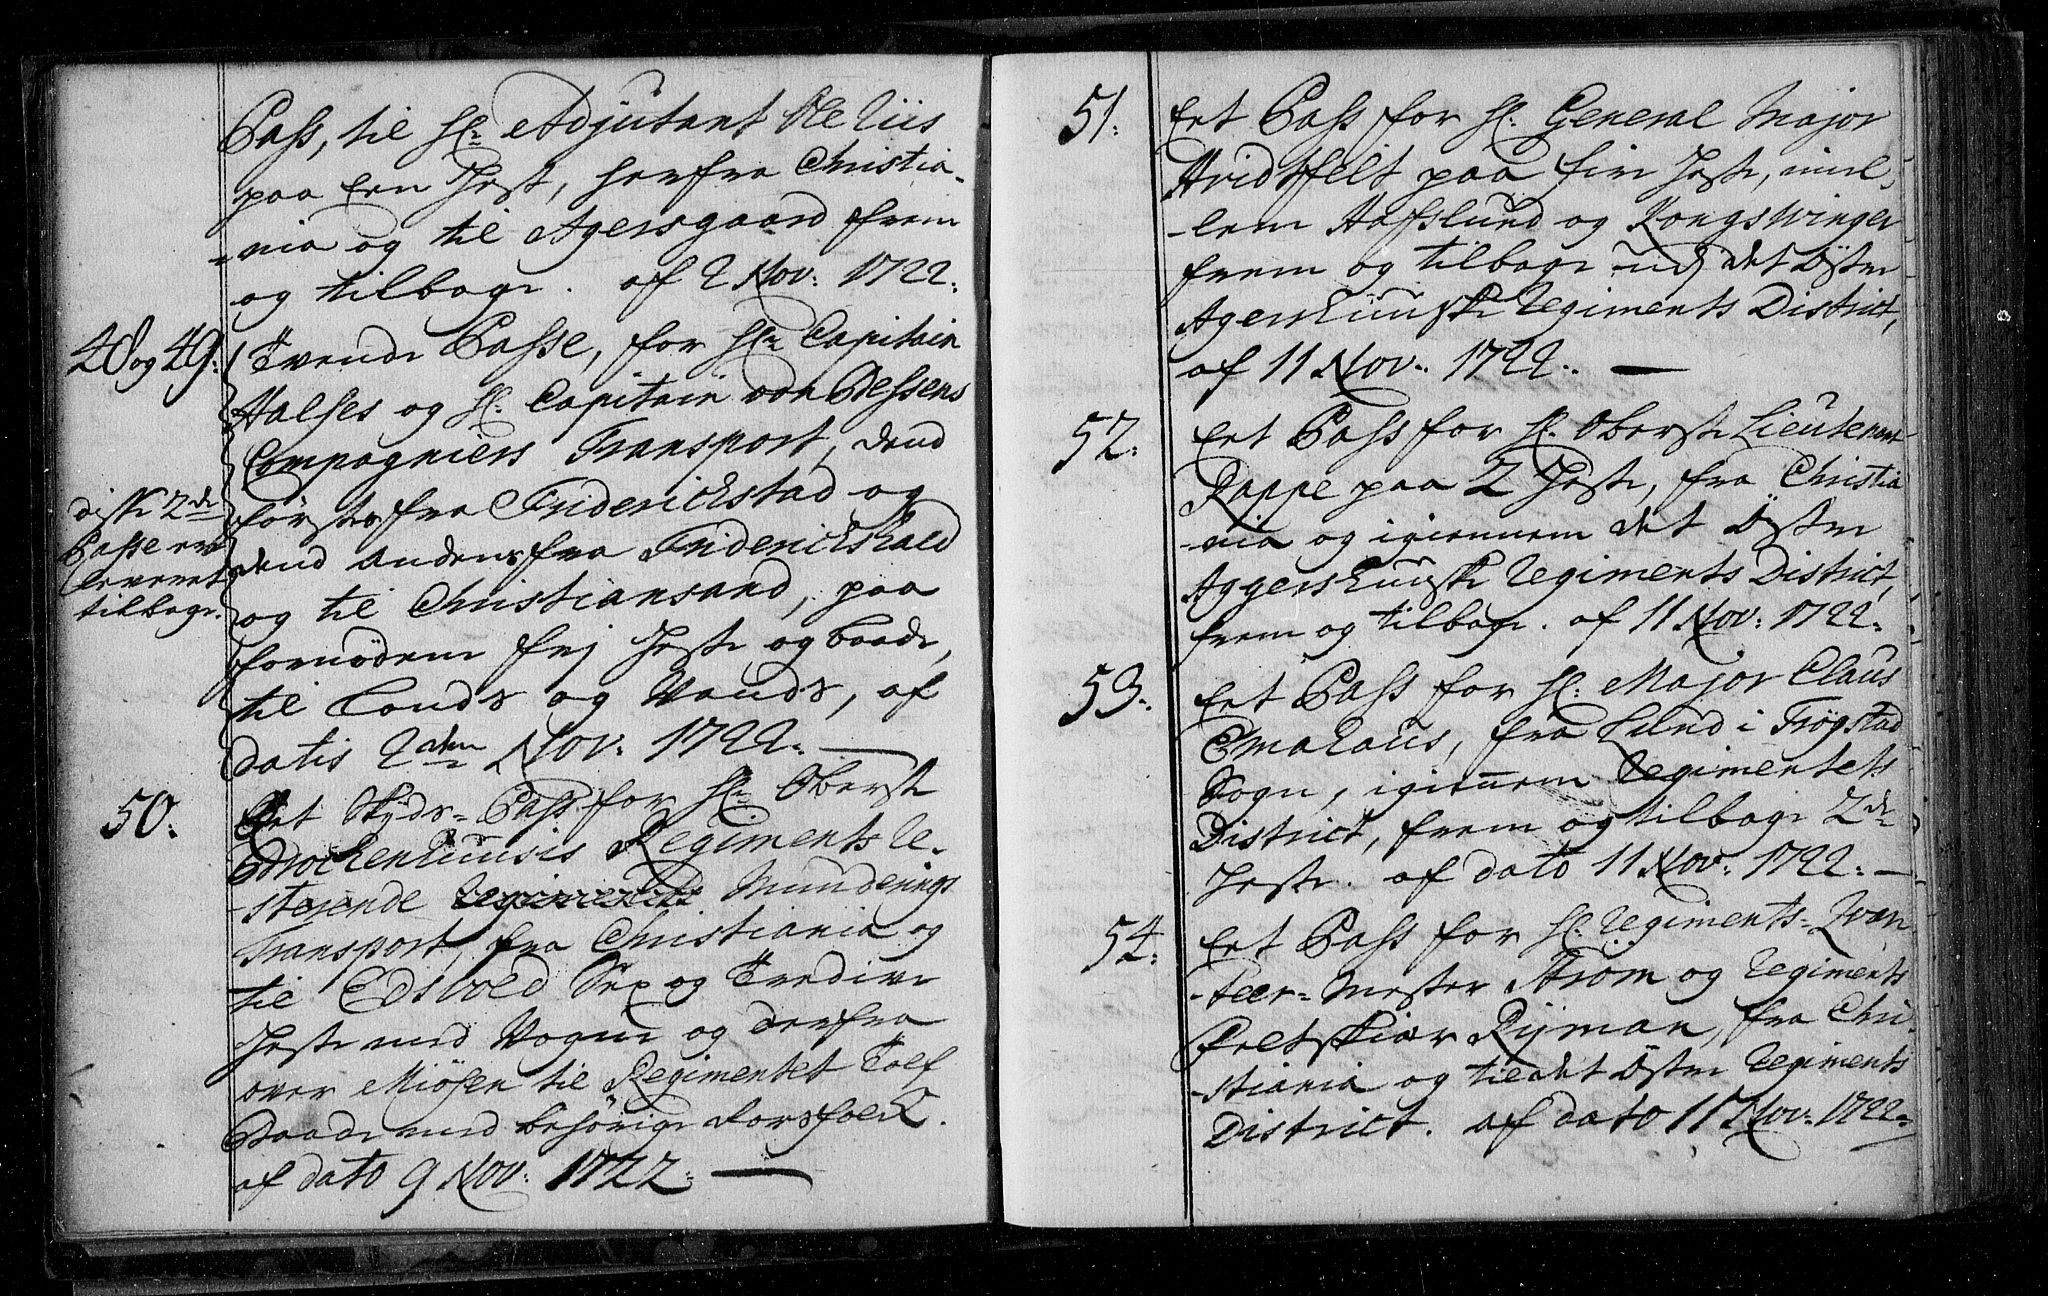 Pass, til Hr. Adjutant
paa Een Hest, herfra Christia-
=nia og til Agersgaard frem
og tilbage. af 2 Nov: 1722.
48 og 49. Tvende Passe, for Hr. Capitain
Halses og Hr. Capitain von Dessens
Compagniers Transport, dend
førstes fra Friderichstad og
dend Andens fra Friderichshald
og til Christiansand, paa
fornødene frj Heste og baade,
til Lands og Vands, af
datis 2den Nov: 1722.
disse 2de
Passe ere
leveret
tilbage.
50. Eet Skyds-Pass for Hr. Oberst
Brockenhuusis Regiments Re-
-sterende Regiments Munderings
Transport, fra Christiania og
til Edsvold Sex og Tredive
Heste med Vogne og derfra
over Miøsen til Regimentet Tolf
Baade med behørige Rorsfolck.
af dato 9 Nov: 1722.
51. Eet Pass for Hr. General Major
Hvidtfelt paa fire Heste, mel-
-lem Hafslund og Kongswinger
frem og tilbage udj det Østre
Agershuuske Regiments District,
af 11 Nov: 1722.
52. Eet Pass for Hr. Oberste Lieutenant
Rappe paa 2 Heste, fra Christia
-nia og igiennem det Østre
Aggershuuske Regiments District,
frem og tilbage. af 11 Nov: 1722.
53. Eet Pass for Hr. Major Claus
Emahaus, fra Lund i Trøgstad
Sogn, igiennem Regimentets
District, frem og tilbage 2de
Heste. af dato 11 Nov: 1722.
54. Eet Pass for Hr. Regiments-Qvar
-teer-Mester Strom og Regiments
Feltskiær Rijman, fra Chri-
-stiania og til det Østre Regiments
District. af dato 11 Nov: 1722.